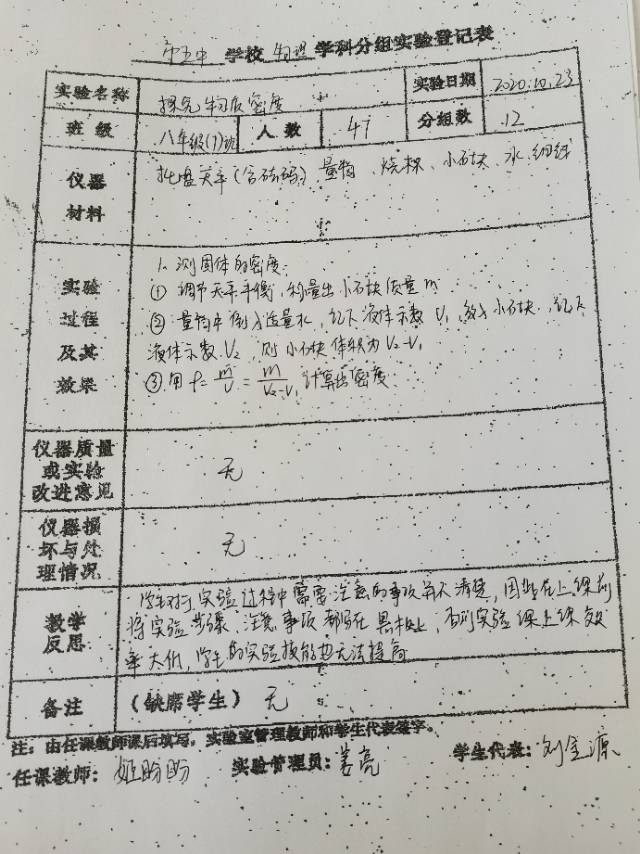 市五中 学校 物理 学科分组实验登记表
实验名称 探究物质密度 实验日期 2020.10.23
班级 八年级(7)班 人数 47 分组数 12
仪器材料 托盘天平(含砝码)、量筒、烧杯、小石块、水、细线
实验过程及其效果
1、测固体的密度:
① 调节天平平衡,称量出小石块质量m
② 量筒中倒入适量水,记下液体示数V₁,放入小石块,记下
液体示数V₂,则小石块体积为V₂-V₁
③ 用ρ=m/V=m/(V₂-V₁)计算出密度
仪器质量或实验改进意见 无
仪器损坏与处理情况 无
教学反思
学生对于实验过程中需要注意的事项并不清楚,因此在上课前
将实验步骤、注意事项都写在黑板上,否则实验课上课效
率大低,学生的实验技能也无法提高
备注 (缺席学生) 无
注:由任课教师课后填写,实验室管理教师和学生代表签字。
任课教师:姬盼盼 实验管理员:姜亮 学生代表:刘金源